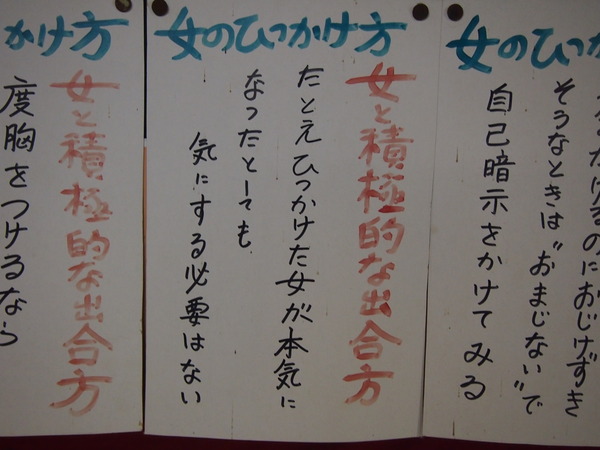 女のひっか
かけるのにおじけずき
そうなときは"おまじない"で
自己暗示をかけてみる
女のひっかけ方
女と積極的な出合方
たとえひっかけた女が本気に
なったとしても
気にする必要はない
かけ方
女と積極的な出合方
度胸をつけるなら